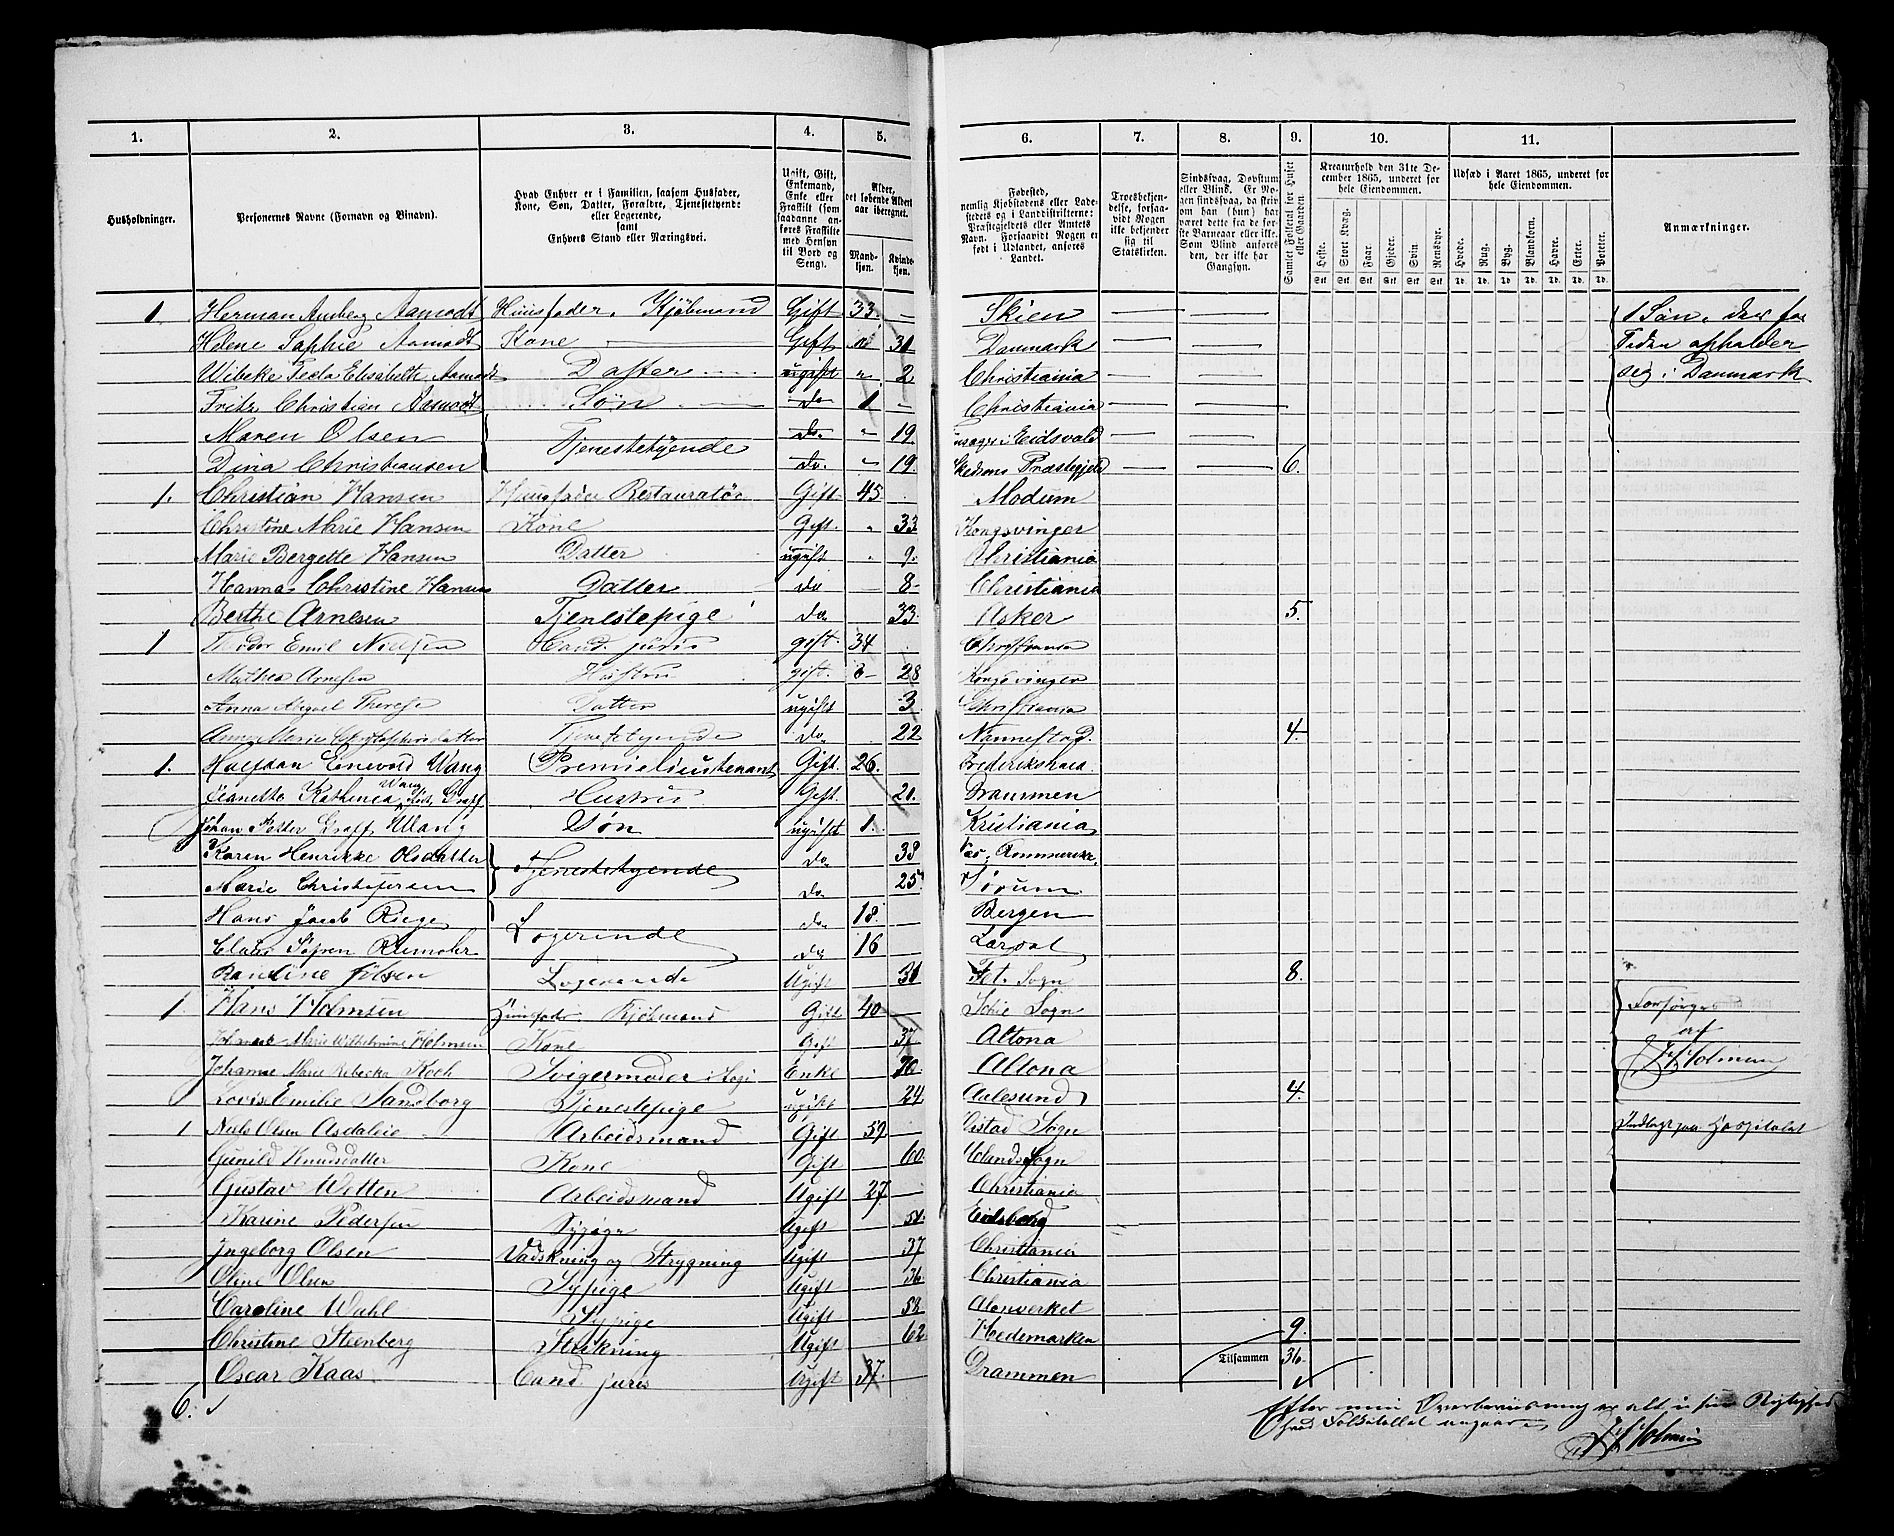 1. 2. 3. 4. 5. 6. 7. 8. 9. 10. 11.
Husholdninger.
Personernes Navne (Fornavn og Binavn).
Hvad Enhver er i Familien, saasom Husfader, Kone, Søn, Datter, Forældre, Tjenestetyende eller Logerende, samt Enhvers Stand eller Næringsvei.
Ugift, Gift, Enkemand, Enke eller Fraskilt (som saadanne anføres Fraskilte med Hensyn til Bord og Seng).
Alder, det løbende Aldersaar iberegnet. Mandkjøn. Kvindekjøn.
Fødested, nemlig Kjøbstadens eller Ladestedets og i Landdistrikterne: Præstegjeldets eller Amtets Navn. Forsaavidt Nogen er født i Udlandet, anføres Landet.
Troesbekjendelse, forsaavidt Nogen ikke bekjender sig til Statskirken.
Sindssvag, Døvstum eller Blind. Er Nogen sindssvag, da skrives om han (hun) har været dette fra de første Barneaar eller ikke. Som Blind anføres den, der ikke har Gangsyn.
Samlet Folketal for Huset eller Gaarden.
Kreaturhold den 31te December 1865, underet for hele Eiendommen.
Heste. Stort Kvæg. Faar. Gjeder. Svin Rensdyr.
Stk Stk Stk Stk Stk Stk
Udsæd i Aaret 1865, underet for hele Eiendommen.
Hvede. Rug. Byg. Blandkorn. Havre. Erter. Poteter.
Td. Td. Td. Td. Td. Td. Td.
Anmærkninger.
1 Herman Amberg Aamodt Huusfader. Kjøbmand Gift 33. — Skien 1 Søn, der for
Helene Sophie Aamodt Kone Gift " 31 Danmark Tiden opholder
Wibeke Tecla Elisabeth Aamodt Datter ugift " 2 Christiania sig i Danmark
Fritz Christian Aamodt Søn do 1 — Christiania
Maren Olsen Tjenestetyende do. " 19. i Eidsvold
Dina Christiansen do. " 19. Skedsmo Præstegjeld 6.
1. Christian Hansen Huusfader Restauratør Gift 45 Modum
Christine Marie Hansen Kone Gift. " 33 Kongsvinger
Marie Bergette Hansen Datter ugift " 9. Christiania
Hanna Christine Hansen Datter do 8 Christiania
Berthe Arnesen Tjenestepige do 33. Asker 5.
1 Theodor Emil Nielsen Cand. juris gift. 34 Christiania
Mathea Arnesen Hustru gift. 28 Kongsvinger
Anna Abigael Therese Datter ugift 3 Christiania
Anne Marie Christophersdatter Tjenestetyende do. 22 Nannestad. 4.
1. Halfdan Enevold Wang Premielieutenant Gift. 26. Frederikshald.
Jeanette Kathinca Wang, født Graff Hustru Gift. 21. Drammen
Johan Peter Graff Wang Søn ugift 1. Kristiania
Karen Henrikke Olsdatter Tjenestetyende do 38 Næs, Rommerike.
Marie Christofersen do 25 Sørum
Hans Jacob Riege Logerende do 18. Bergen
Claus Søren Rumohr do 16 Larvol
Pauline Jølsen Logerende Ugift 31 Fet. Sogn 8.
1. Hans Holmsen Huusfader Kjøbmand Gift 40 Schie Sogn Forsørges
Johanne Marie Wilhelmine Holmsen Kone Gift 37 Altona af
Johanne Marie Rebecka Koch Svigermoder i Logi Enke 70. Altona H Holmsen
Lovise Emilie Sandborg Tjenestepige ugift 24 Aalesund 4.
1 Niels Olsen Asdaleie Arbeidsmand Gift 59. Sogn Indlagt paa Hospitalet
Gunild Knudsdatter Kone Gift 60 Hølands Sogn
Gustav Wetten Arbeidsmand Ugift 27. Christiania
Karine Pedersen Sypige Ugift 51. Eidsberg
Ingeborg Olsen Vadskning og Strygning Ugift 37 Christiania
Oline Olsen Sypige Ugift 36 Christiania
Caroline Wahl Sypige Ugift 52 Alunverket
Christine Steenberg Strikning Ugift 62 Hedemarken 9.
Oscar Kaas Cand juris Ugift 37. Drammen Tilsammen 36.
6.
Efter min Overbeviisning er alt i sin Rigtighed
hvad Folketallet angaaer
H Holmsen